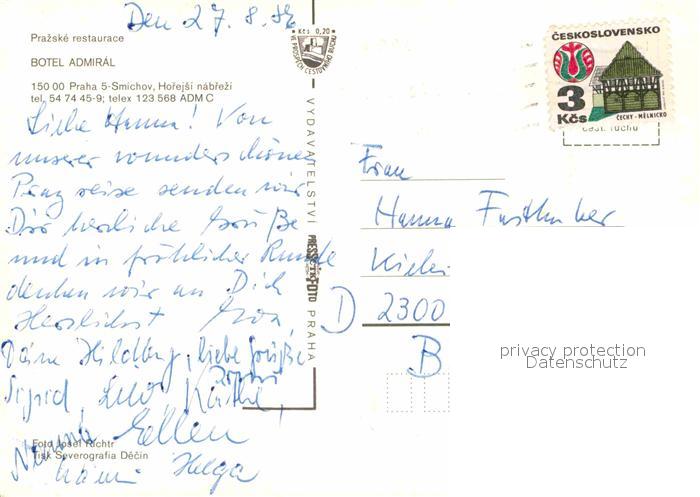 Den 27.8.
Pražské restaurace
BOTEL ADMIRÁL
150 00 Praha 5-Smíchov, Hořejší nábřeží
tel. 54 74 45-9; telex 123 568 ADM C
Kčs 0,20
VE PROSPĚCH CESTOVNÍHO RUCHU
ČESKOSLOVENSKO
3 Kčs
ČECHY - MĚLNICKO
cest. ruchu
Liebe Hanna! Von
unserer wunderschönen
Pragreise senden wir
Dir herzliche Grüße
und in fröhlicher Runde
denken wir an Dich
Herzlichst
Hildburg, liebe Grüße
Sigrid, Käthe,
Ellen
Helga
VYDAVATELSTVÍ PRESSFOTO PRAHA
Foto Josef Richtr
Tisk Severografia Děčín
Frau
Hanna
D 2300
privacy protection
Datenschutz